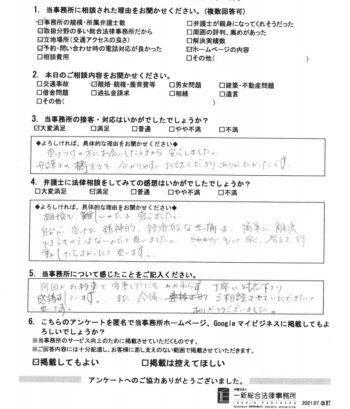 1. 当事務所に相談された理由をお聞かせください。(複数回答可)
☑事務所の規模・所属弁護士数 □弁護士が親身になってくれそうだった
☑取扱分野の多い総合法律事務所だから □周囲の評判、薦めがあった
☑立地場所(交通アクセスの良さ) □解決実績数
☑予約・問い合わせ時の電話対応が良かった ☑ホームページの内容
□相談費用 □その他(
2. 本日のご相談内容をお聞かせください。
□交通事故 ☑離婚・親権・養育費等 □男女問題 □建築・不動産問題
□借金問題 □過払金請求 □相続 □遺言
□その他( )
3. 当事務所の接客・対応はいかがでしたでしょうか?
☑大変満足 □満足 □普通 □やや不満 □不満
◆よろしければ、具体的な理由をお聞かせください◆
受けつけの方にお会いしたときから安心しました。
弁護士の
4. 弁護士に法律相談をしてみての感想はいかがでしたでしょうか?
□大変満足 ☑満足 □普通 □やや不満 □不満
◆よろしければ、具体的な理由をお聞かせください◆
離婚は、難しいのだと感じました。
自分が受けた精神的、経済的な苦痛は、簡単に解決
できるものではないんだと思いました。
5. 当事務所について感じたことをご記入ください。
何回かお約束を変更したにもかかわらず、丁寧に対応下さり
感謝しています。また今後ご相談させていただきたいと
思います。ありがとうございました。
6. こちらのアンケートを匿名で当事務所ホームページ、Googleマイビジネスに掲載してもよ
ろしいでしょうか?
※当事務所のサービス向上のために掲載させていただくものです。
※ご回答内容には十分配慮し、お客様に差し支えのない範囲で掲載させていただきます。
☑掲載してもよい □掲載は控えてほしい
アンケートへのご協力ありがとうございました。
弁護士法人
一新総合法律事務所
ISSHIN PARTNERS
2021.07 改訂